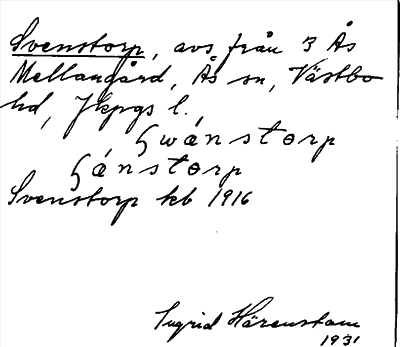 Svenstorp, avs. från 3 Ås
Mellangård, Ås sn, Västbo
hd, Jkpgs l.
Svenstorp kb 1916
Ingrid Härenstam
1931